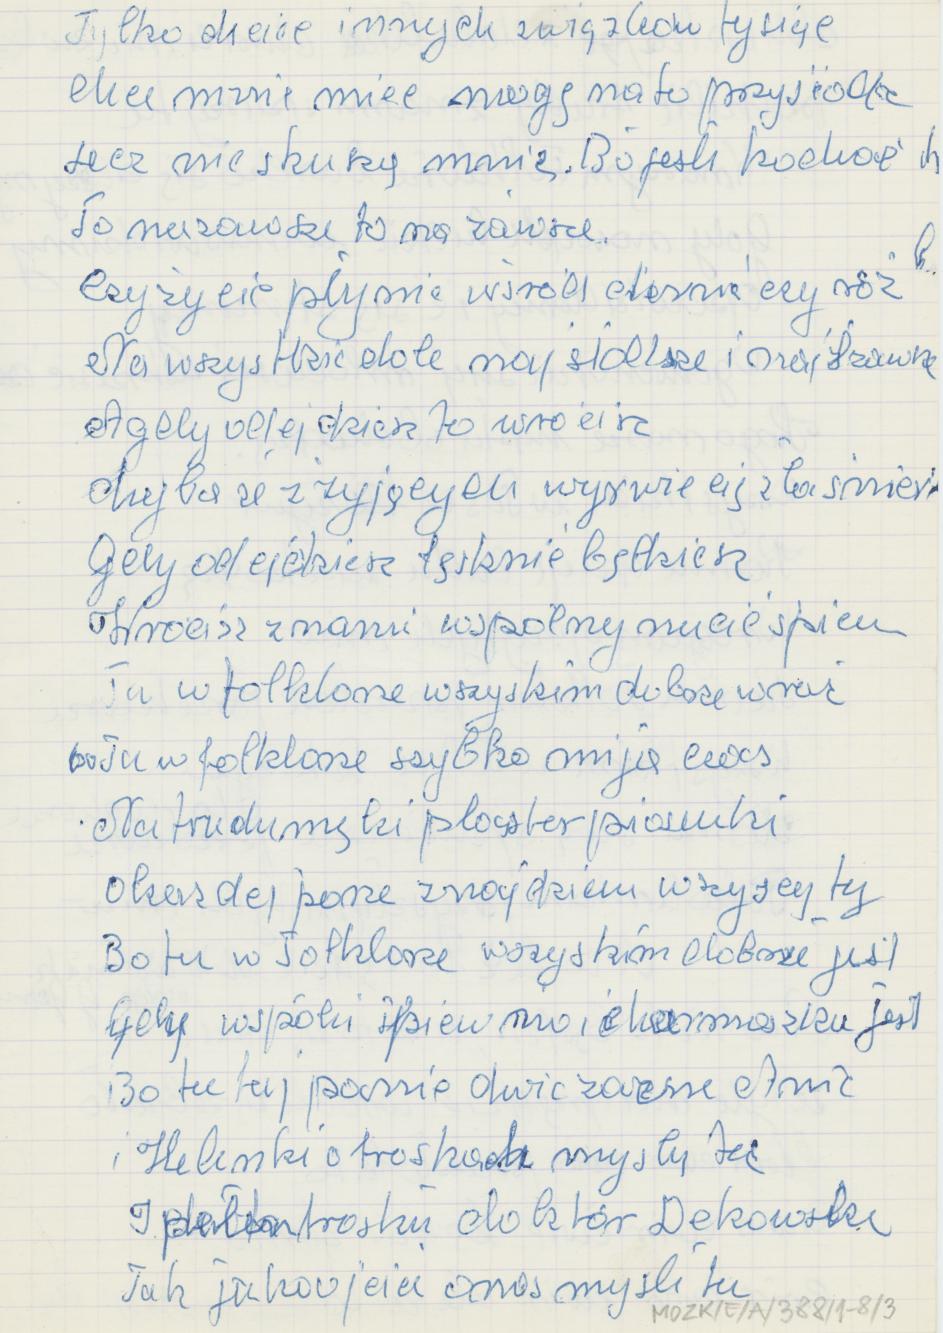 Tylko chcice innych związków tysięc
chce mnie mieć mogę na to przysiodz
lecz nie skuszą mnie. Bo jesli kochać
To nazawsze to na zawsze.
Czy życie płynie wśrod cierni czy róż
Na wszystkie dole najsłodsze i najkrawsze
A gdy odejdziesz to wrócisz
chyba że z żyjących wyrwie cię zła śmierć
Gdy odejdziesz tęsknić będziesz
Wrocisz z nami wspólny nucić śpiew
Tu w folklorze wszyskim dobrze wraz
bo Tu w folklorze szybko mija czas
Na trudu męki plaster piosenki
O każdej porze znajdziem wszyscy ty
Bo tu w Folklorze wszyskim dobrze jest
Gdy wspólni śpiew no i charmoszka jest
Bo tutaj pannie dwie zaczne Anie
i Helenki o troskach myslą też
I pełen troski doktór Dekowski
Tak jak ojciec o nas mysli tu
MOZK/E/A/388/1-8/3